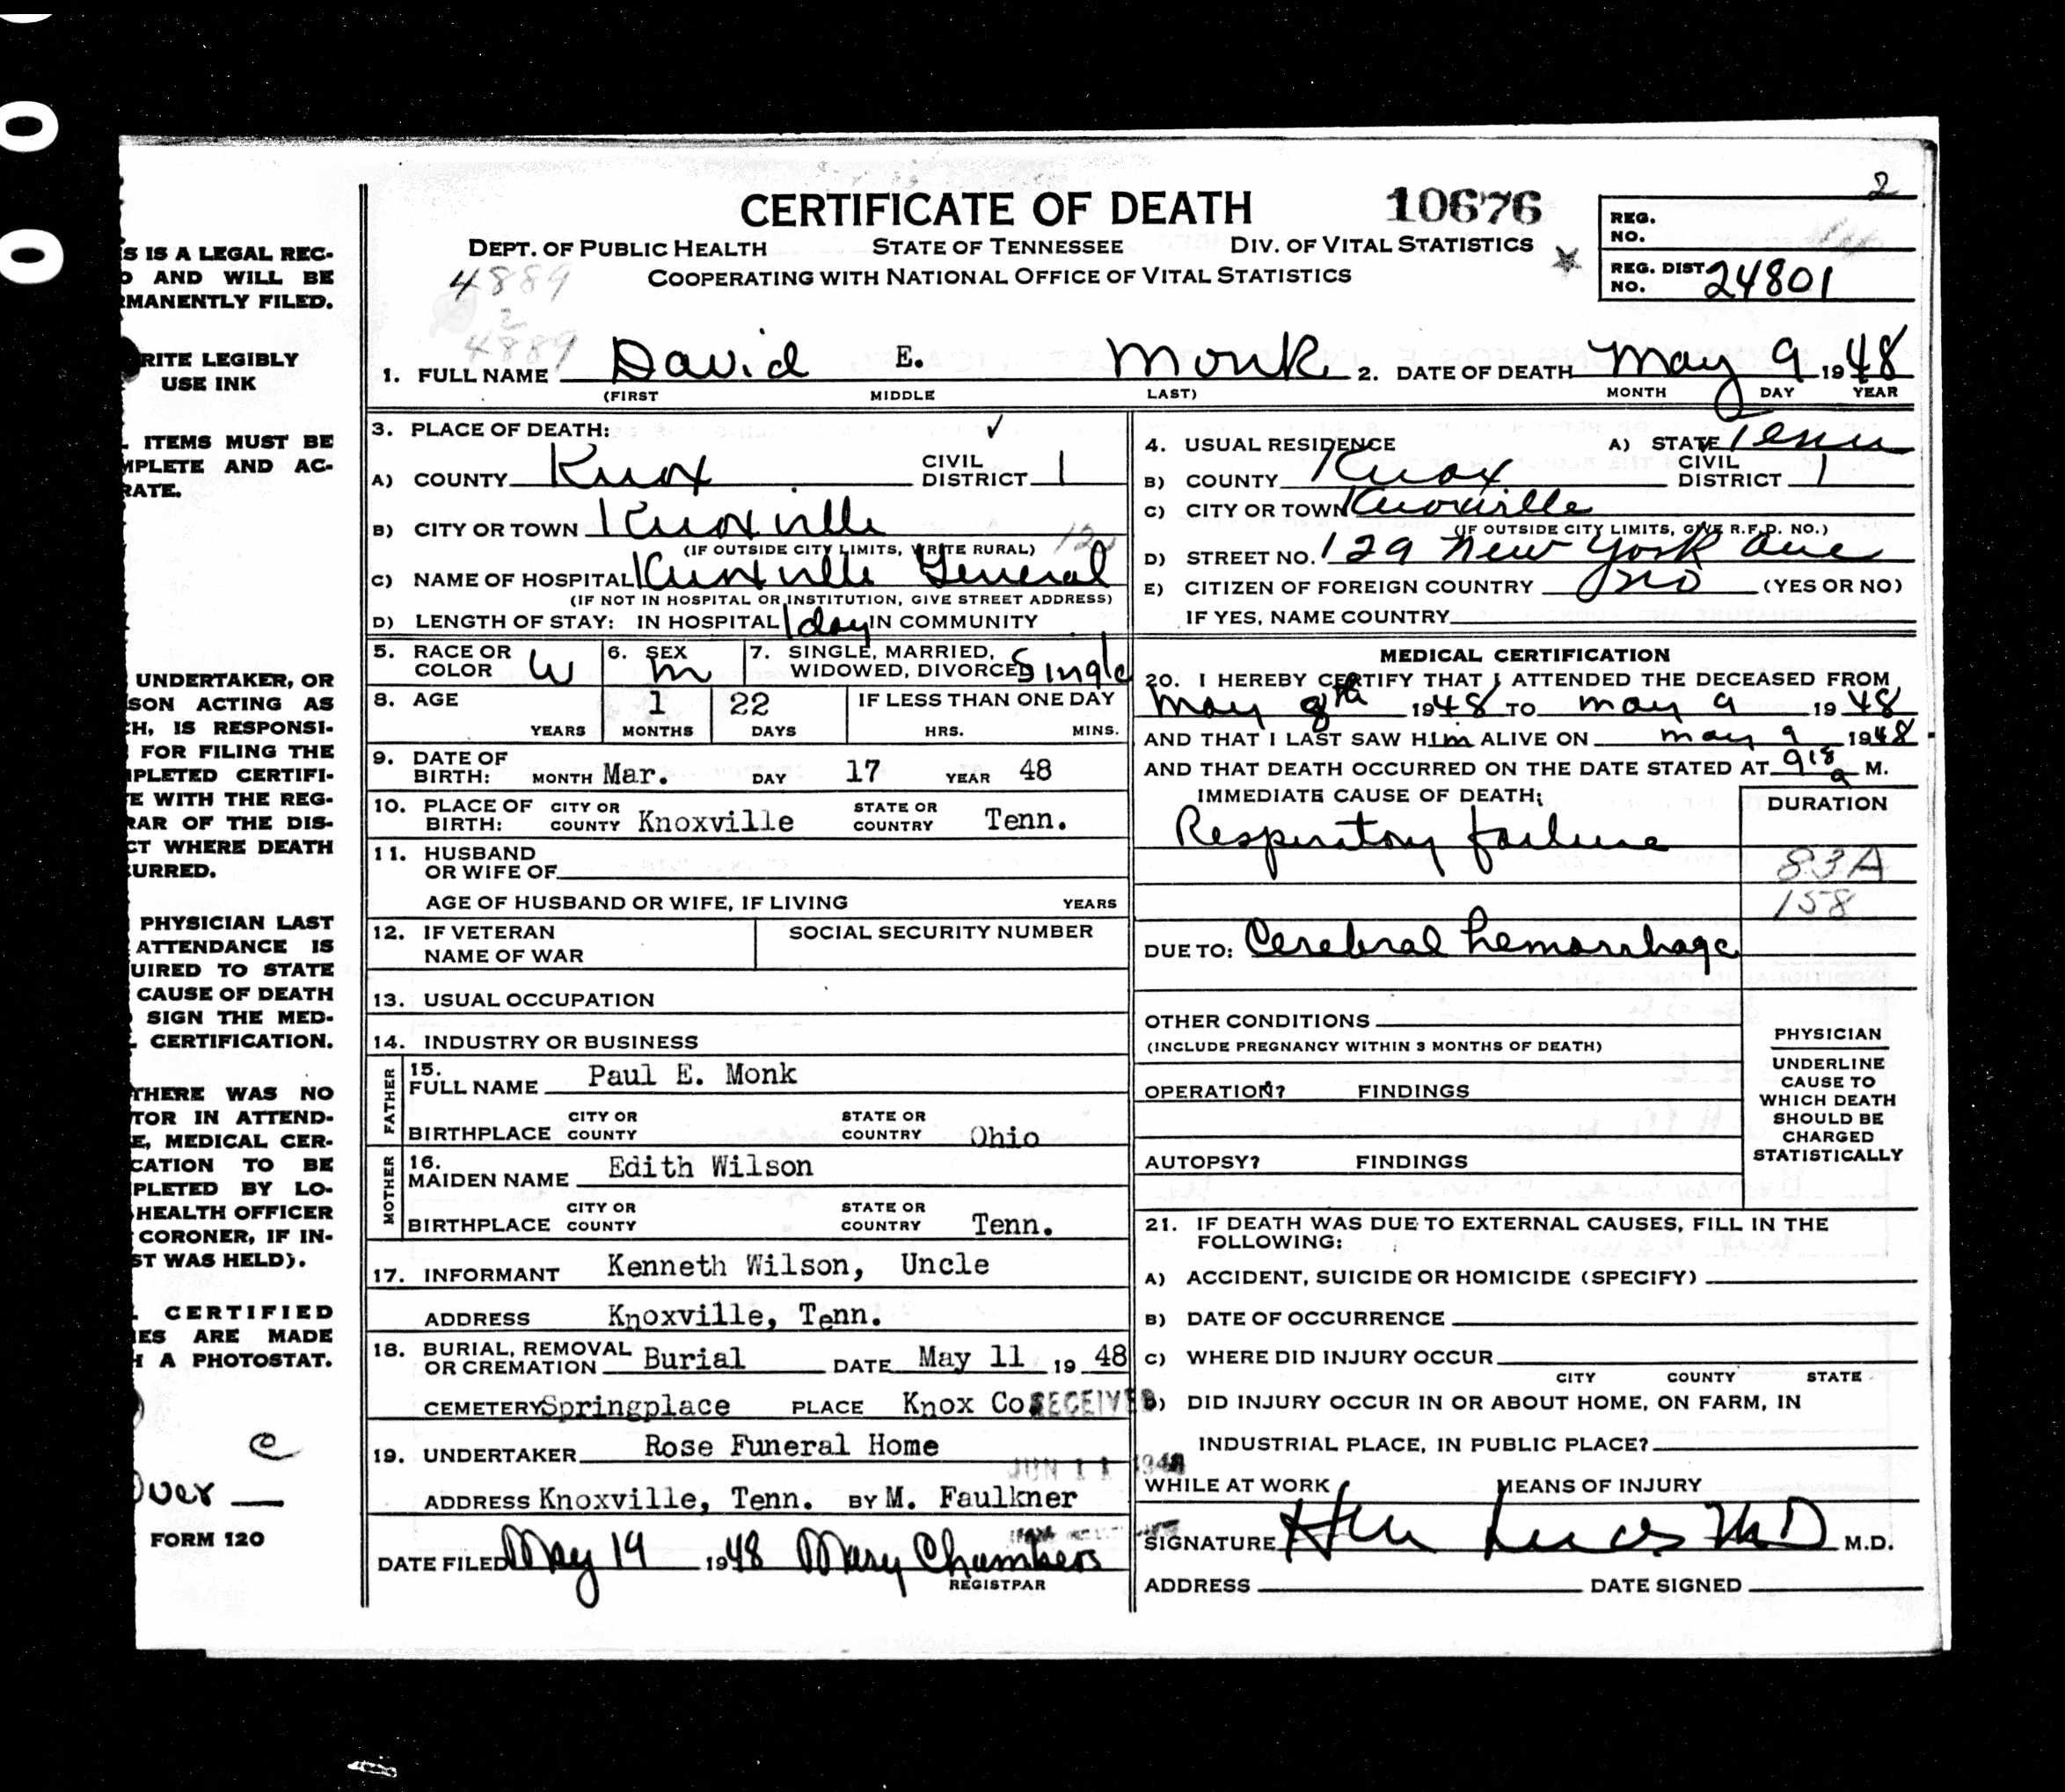 CERTIFICATE OF DEATH 10676
2
REG. NO.
DEPT. OF PUBLIC HEALTH STATE OF TENNESSEE DIV. OF VITAL STATISTICS
COOPERATING WITH NATIONAL OFFICE OF VITAL STATISTICS
REG. DIST. NO. 24801
4889
2
4889
1. FULL NAME David E. Monk 2. DATE OF DEATH May 9 1948
(FIRST MIDDLE LAST) MONTH DAY YEAR
3. PLACE OF DEATH:
A) COUNTY Knox CIVIL DISTRICT 1
B) CITY OR TOWN Knoxville
(IF OUTSIDE CITY LIMITS, WRITE RURAL)
C) NAME OF HOSPITAL Knoxville General
(IF NOT IN HOSPITAL OR INSTITUTION, GIVE STREET ADDRESS)
D) LENGTH OF STAY: IN HOSPITAL 1 day IN COMMUNITY
4. USUAL RESIDENCE A) STATE Tenn
B) COUNTY Knox CIVIL DISTRICT 1
C) CITY OR TOWN Knoxville
(IF OUTSIDE CITY LIMITS, GIVE R.F.D. NO.)
D) STREET NO. 129 New York Ave
E) CITIZEN OF FOREIGN COUNTRY no (YES OR NO)
IF YES, NAME COUNTRY
5. RACE OR COLOR W 6. SEX m 7. SINGLE, MARRIED, WIDOWED, DIVORCED Single
8. AGE 1 22 IF LESS THAN ONE DAY
YEARS MONTHS DAYS HRS. MINS.
9. DATE OF BIRTH: MONTH Mar. DAY 17 YEAR 48
10. PLACE OF BIRTH: CITY OR COUNTY Knoxville STATE OR COUNTRY Tenn.
11. HUSBAND OR WIFE OF
AGE OF HUSBAND OR WIFE, IF LIVING YEARS
12. IF VETERAN NAME OF WAR SOCIAL SECURITY NUMBER
13. USUAL OCCUPATION
14. INDUSTRY OR BUSINESS
FATHER
15. FULL NAME Paul E. Monk
BIRTHPLACE CITY OR COUNTY STATE OR COUNTRY Ohio
MOTHER
16. MAIDEN NAME Edith Wilson
BIRTHPLACE CITY OR COUNTY STATE OR COUNTRY Tenn.
17. INFORMANT Kenneth Wilson, Uncle
ADDRESS Knoxville, Tenn.
18. BURIAL, REMOVAL OR CREMATION Burial DATE May 11 19 48
CEMETERY Springplace PLACE Knox Co RECEIVED
19. UNDERTAKER Rose Funeral Home
JUN 11 1948
ADDRESS Knoxville, Tenn. BY M. Faulkner
DATE FILED May 19 1948 Mary Chambers
REGISTRAR
MEDICAL CERTIFICATION
20. I HEREBY CERTIFY THAT I ATTENDED THE DECEASED FROM
May 8th 1948 TO May 9 1948
AND THAT I LAST SAW Him ALIVE ON May 9 1948
AND THAT DEATH OCCURRED ON THE DATE STATED AT 918 a M.
IMMEDIATE CAUSE OF DEATH: DURATION
Respiratory failure
83A
158
DUE TO: Cerebral hemorrhage
OTHER CONDITIONS
(INCLUDE PREGNANCY WITHIN 3 MONTHS OF DEATH)
OPERATION? FINDINGS
AUTOPSY? FINDINGS
PHYSICIAN
UNDERLINE
CAUSE TO
WHICH DEATH
SHOULD BE
CHARGED
STATISTICALLY
21. IF DEATH WAS DUE TO EXTERNAL CAUSES, FILL IN THE
FOLLOWING:
A) ACCIDENT, SUICIDE OR HOMICIDE (SPECIFY)
B) DATE OF OCCURRENCE
C) WHERE DID INJURY OCCUR
CITY COUNTY STATE
D) DID INJURY OCCUR IN OR ABOUT HOME, ON FARM, IN
INDUSTRIAL PLACE, IN PUBLIC PLACE?
WHILE AT WORK MEANS OF INJURY
SIGNATURE MD M.D.
ADDRESS DATE SIGNED
S IS A LEGAL REC-
AND WILL BE
MANENTLY FILED.
RITE LEGIBLY
USE INK
ITEMS MUST BE
MPLETE AND AC-
RATE.
UNDERTAKER, OR
SON ACTING AS
H, IS RESPONSI-
FOR FILING THE
PLETED CERTIFI-
E WITH THE REG-
RAR OF THE DIS-
CT WHERE DEATH
URRED.
PHYSICIAN LAST
ATTENDANCE IS
UIRED TO STATE
CAUSE OF DEATH
SIGN THE MED-
CERTIFICATION.
THERE WAS NO
TOR IN ATTEND-
E, MEDICAL CER-
CATION TO BE
PLETED BY LO-
HEALTH OFFICER
CORONER, IF IN-
ST WAS HELD).
CERTIFIED
IES ARE MADE
H A PHOTOSTAT.
C
Over
FORM 120